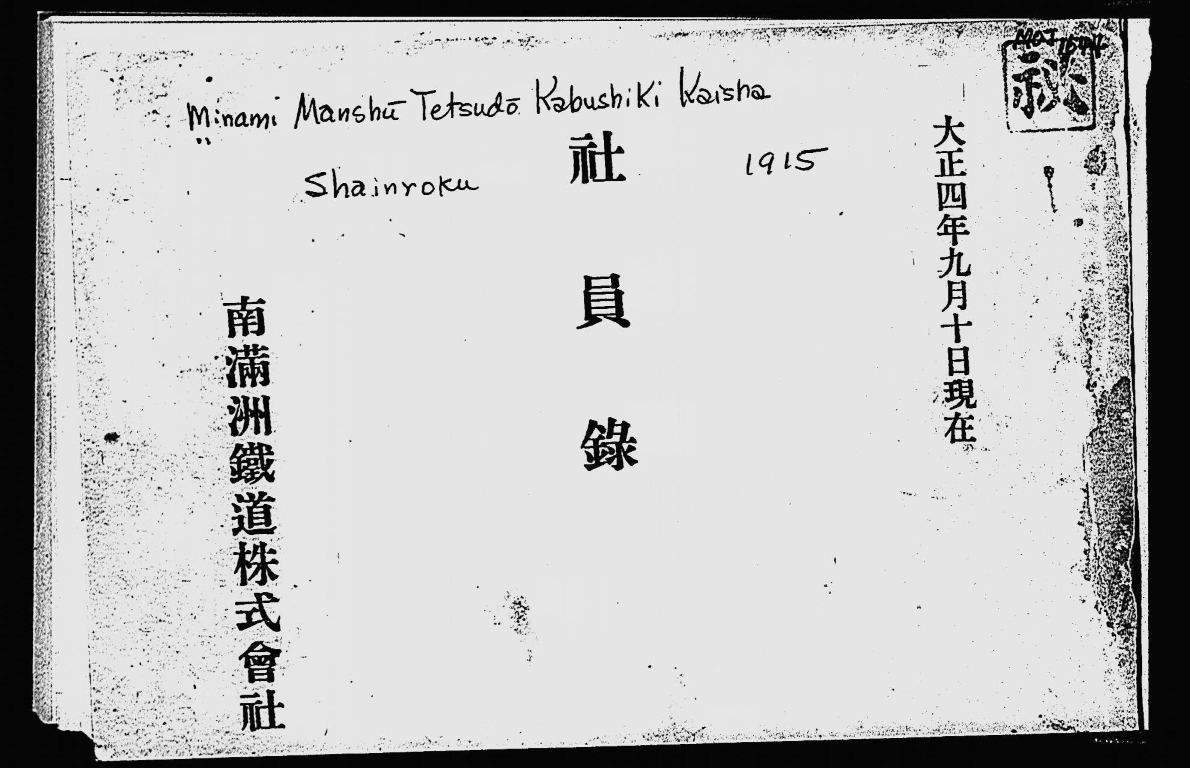 Minami Manshū Tetsudō Kabushiki Kaisha
Shainroku 1915
大正四年九月十日現在
社員錄
南滿洲鐵道株式會社
秘